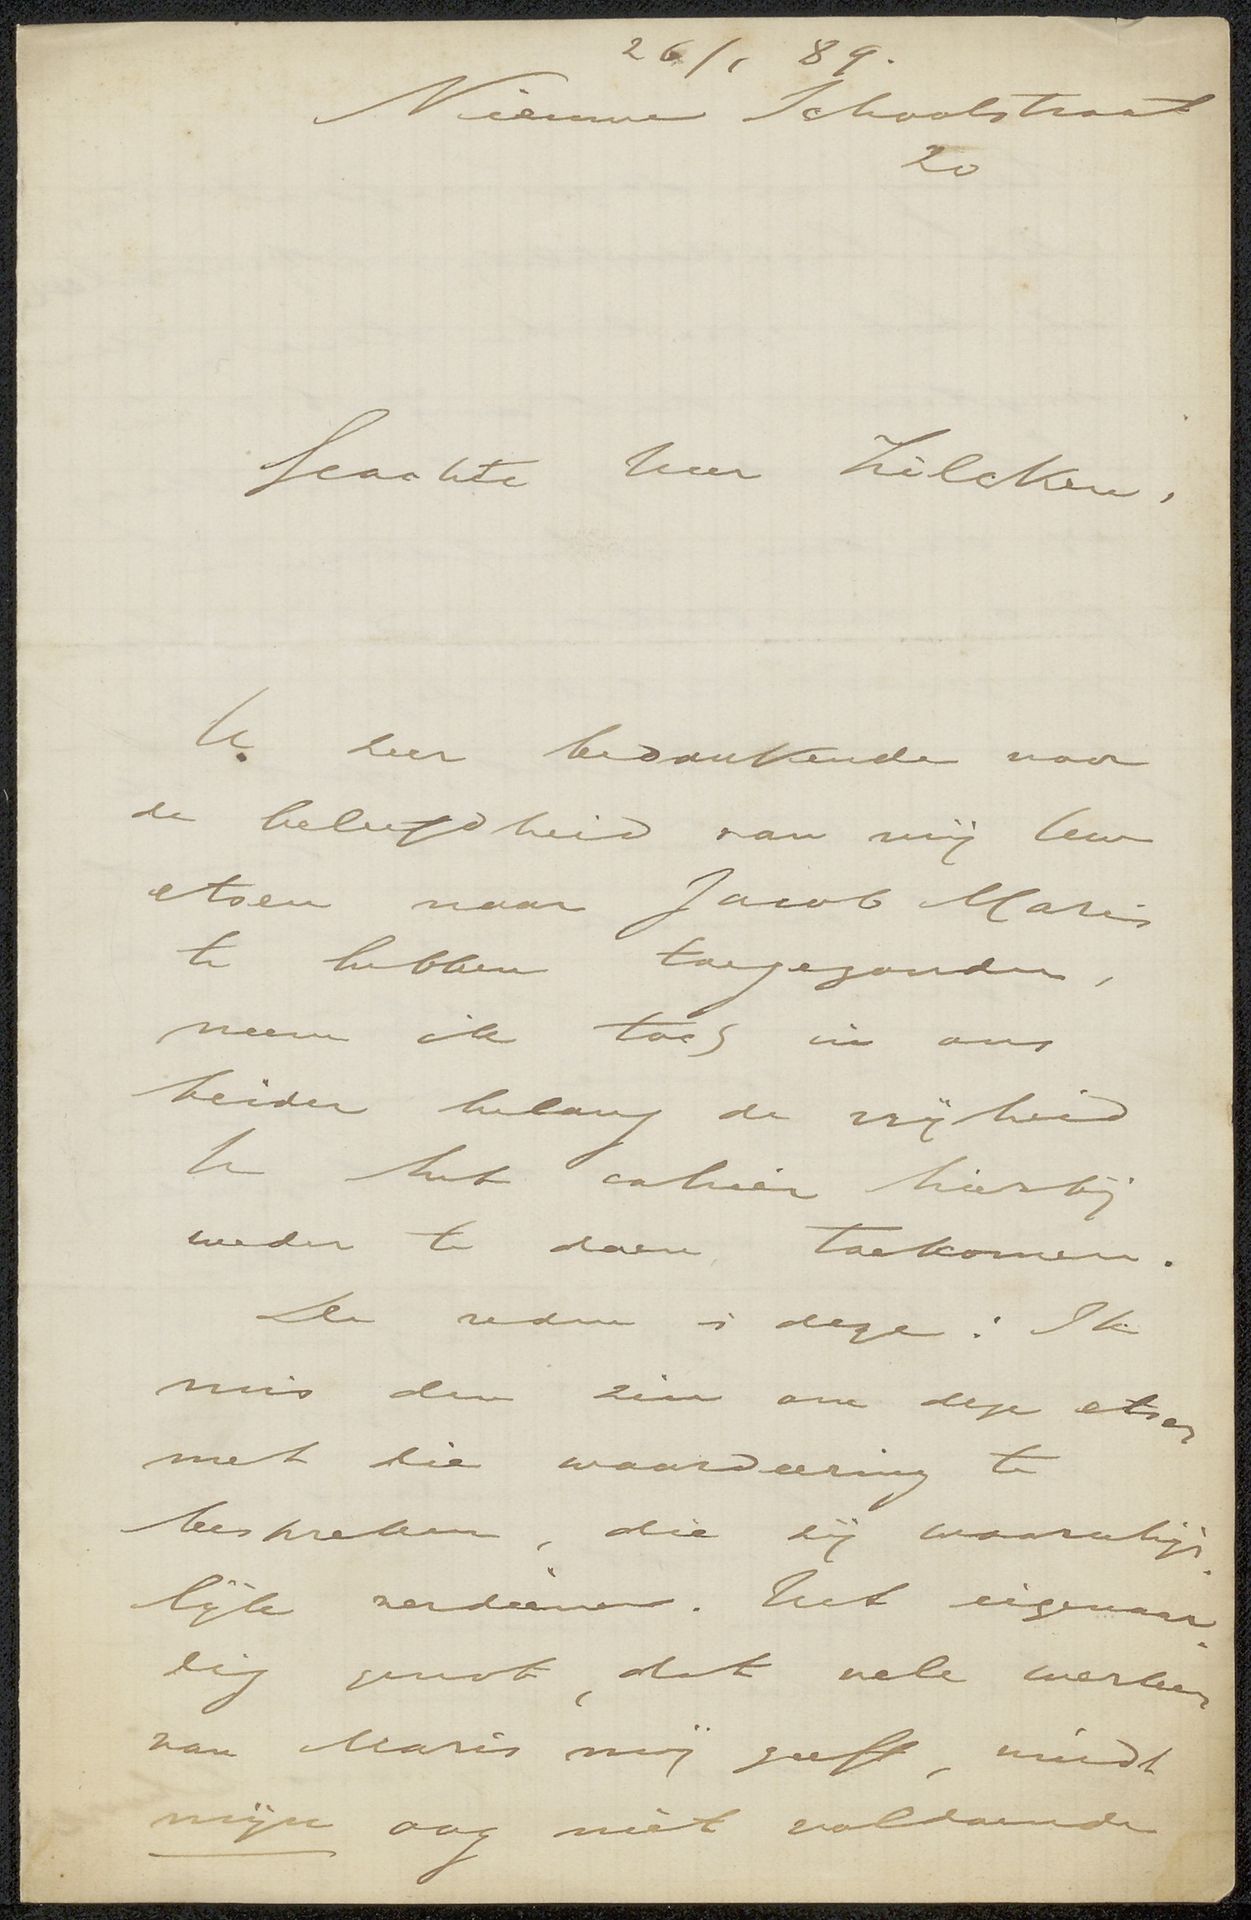 26/1 89.
Nieuwe Schoolstraat
20
Geachte Heer Zilcken,
U. zeer bedankende voor
de beleefdheid van mij Uw
etsen naar Jacob Maris
te hebben toegezonden,
neem ik toch in ons
beider belang de vrijheid
U het cahier hierbij
weder te doen toekomen.
De reden is deze: Ik
mis den zin om deze etsen
met die waardeering te
bespreken, die zij waarschijn-
lijk verdienen. Het eigenaar-
dig genot, dat vele werken
van Maris mij geeft, vindt
mijn oog niet voldoende